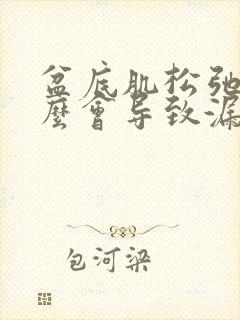 盆底肌松弛
麽會导致漏
包河梁